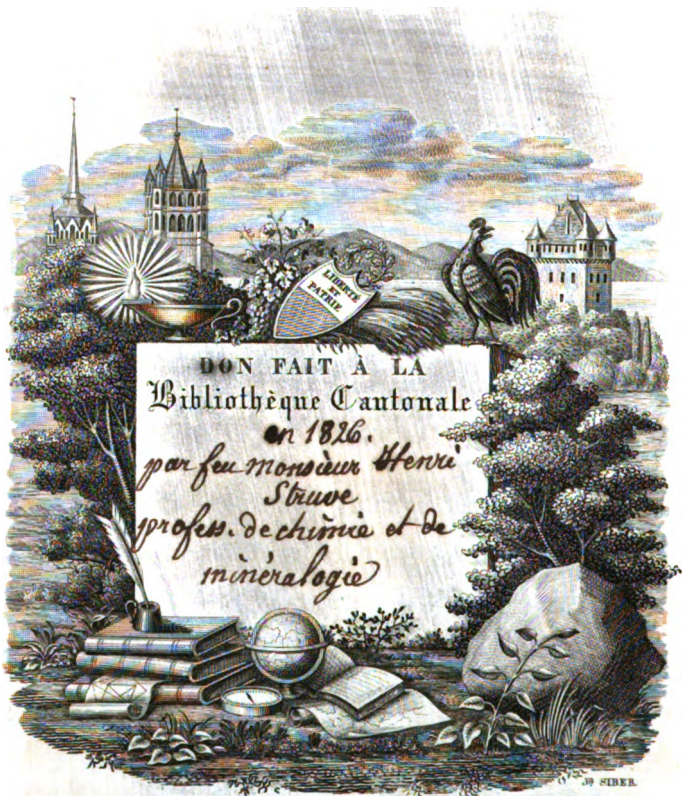 LIBERTÉ
ET
PATRIE
DON FAIT À LA
Bibliothèque Cantonale
en 1826.
par feu monsieur Henri
Struve
profess. de chimie et de
minéralogie
SIBER